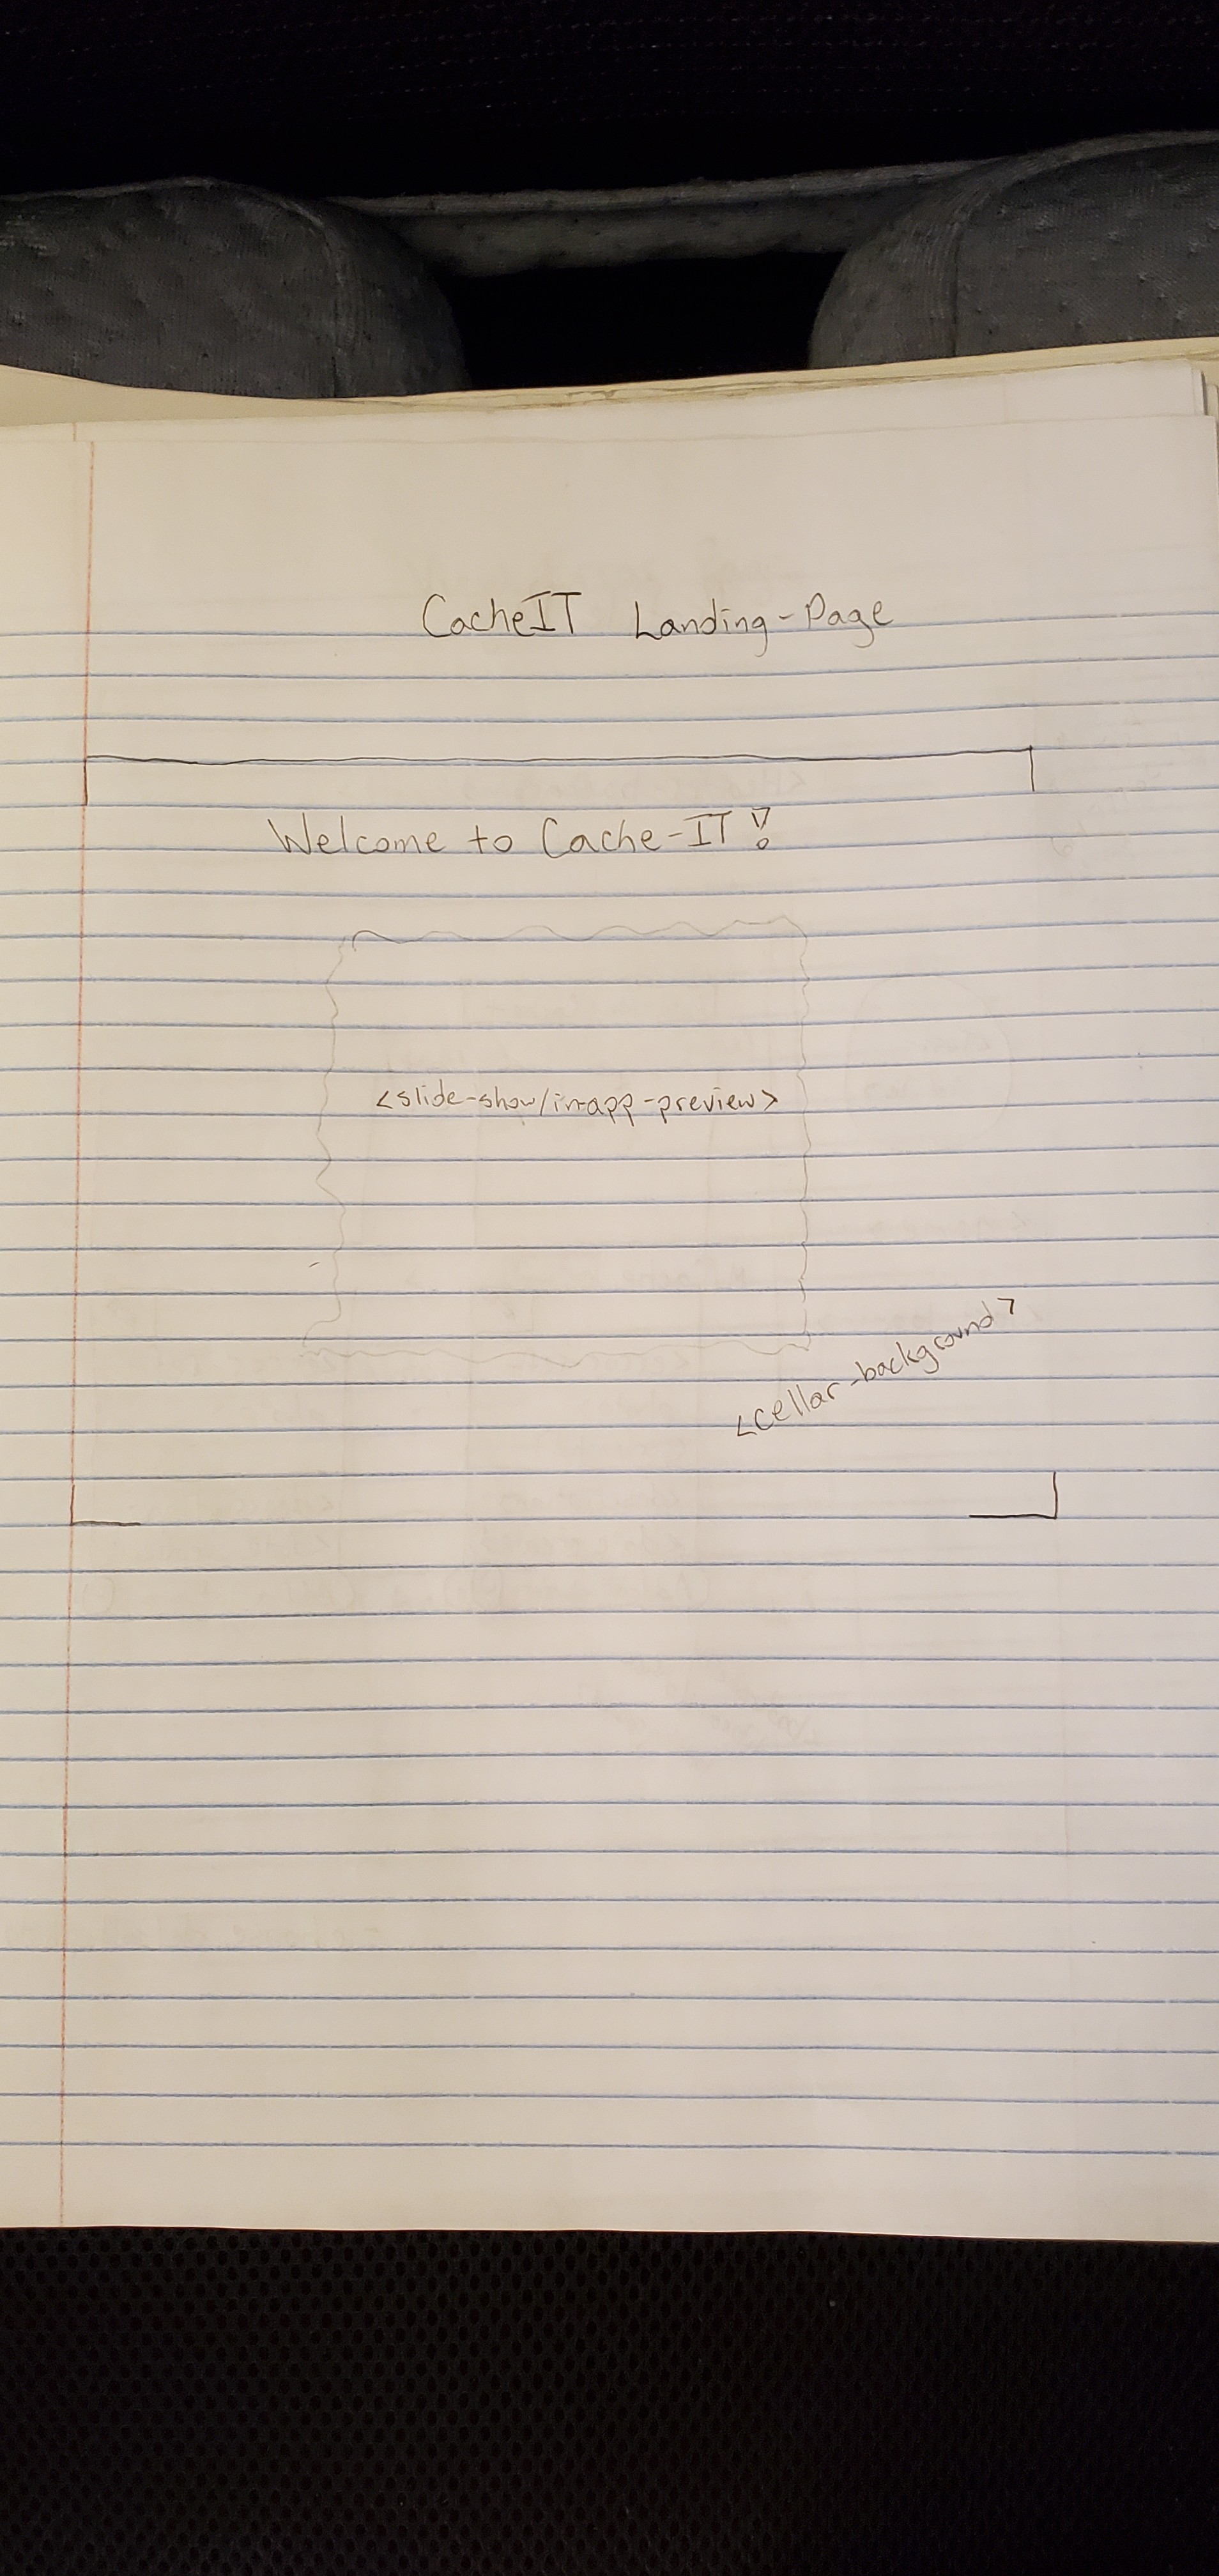 CacheIT Landing-Page
Welcome to Cache-IT!
<slide-show/in-app-preview>
<cellar-background>